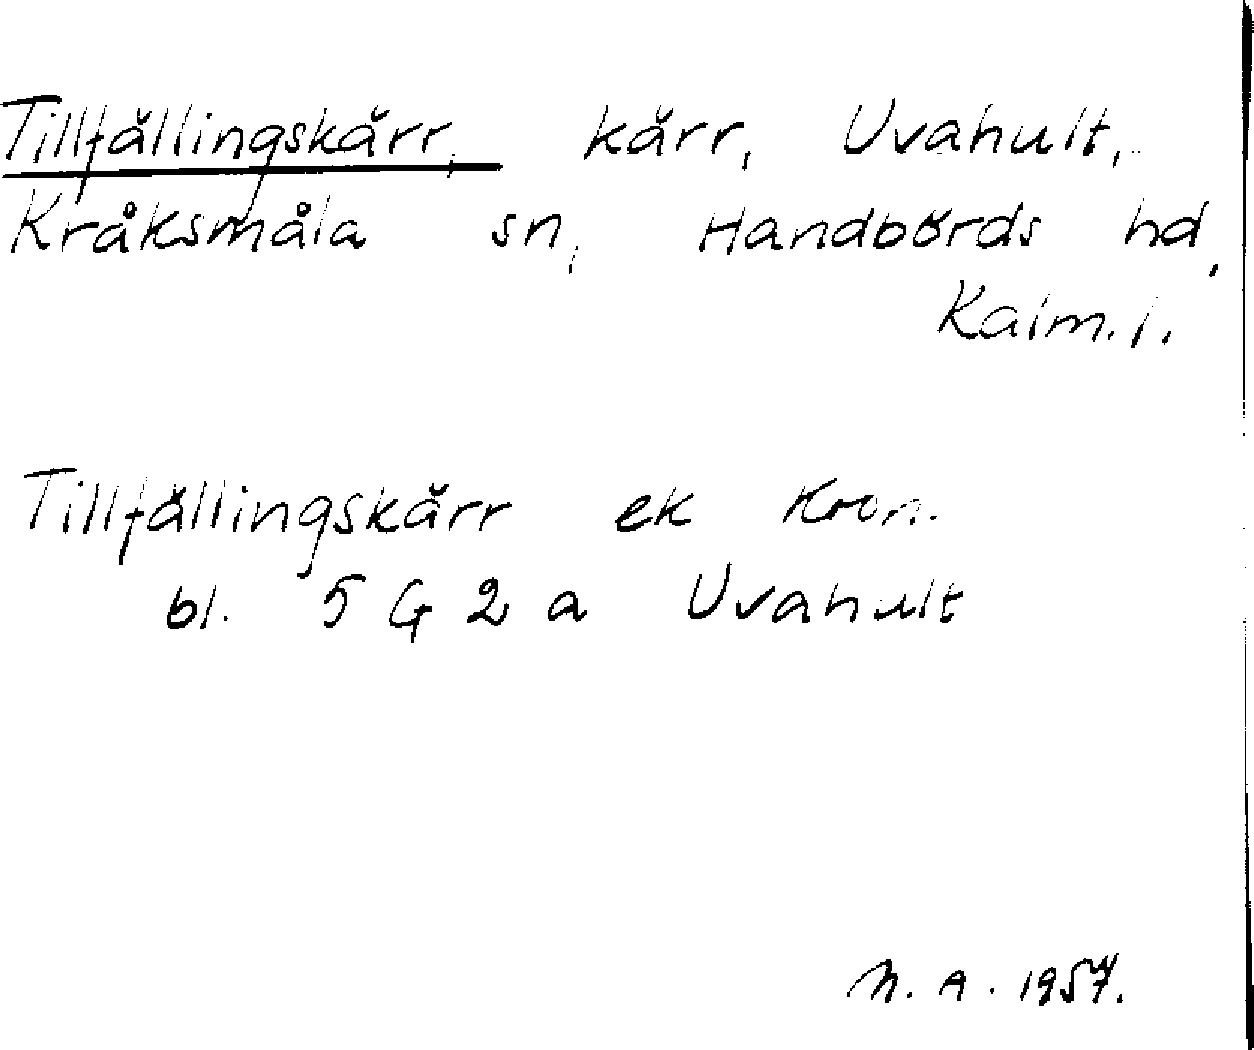 Tillfällingskärr, kärr, Uvahult,
Kråksmåla sn, Handbörds hd,
Kalm. l.
Tillfällingskärr ek Kron.
bl. 5 G 2 a Uvahult
N. A. 1957.